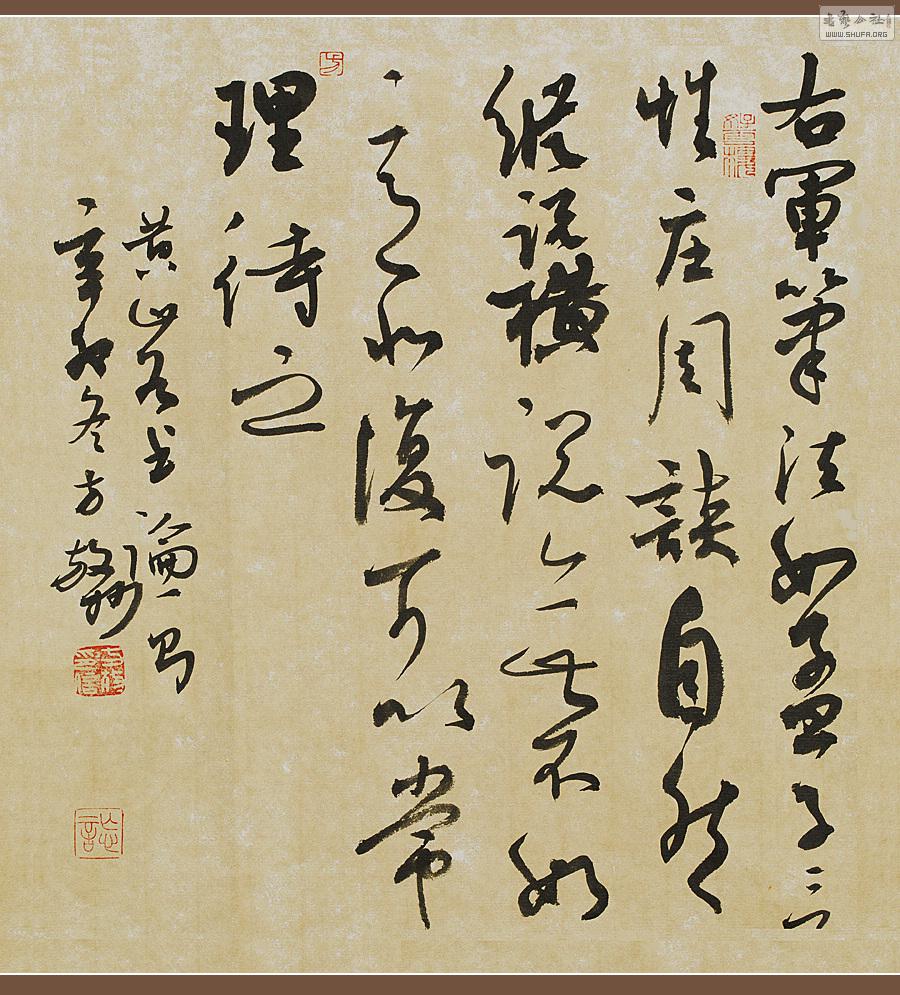 右軍筆法如孟子言
性庄周談自然
縱説橫説無不如
意非復可以常
理待之
黄山谷书論一則
辛卯冬方
書艺公社
WWW.SHUFA.ORG